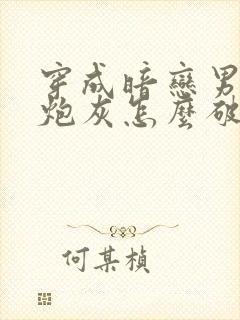 穿成暗戀男
炮灰怎麼破
何某楨